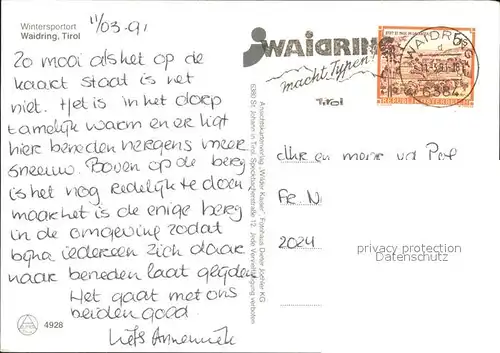 Wintersportort
Waidring, Tirol
11/03-91
Zo mooi als het op de
kaart staat is het
niet. Het is in het dorp
tamelijk warm en er ligt
hier beneden nergens meer
sneeuw. Boven op de berg
is het nog redelijk te doen
maar het is de enige berg
in de omgeving zodat
bijna iedereen zich daar
naar beneden laat glijden
Het gaat met ons
beiden goed.
Liefs Annemiek
4928
Ansichtskartenverlag „Wilder Kaiser“, Fotohaus Dieter Jöchler KG
6380 St. Johann in Tirol, Speckbacherstraße 12. Jede Vervielfältigung verboten
WAIDRING
macht Typen!
Tirol
WAIDRING
6384
REPUBLIK ÖSTERREICH
Dhr en mevr vd
2024
privacy protection
Datenschutz